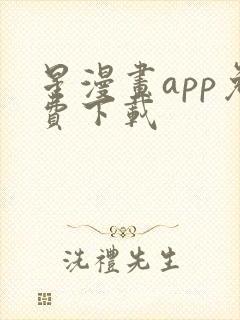 星漫畫app免
費下載
洗禮先生